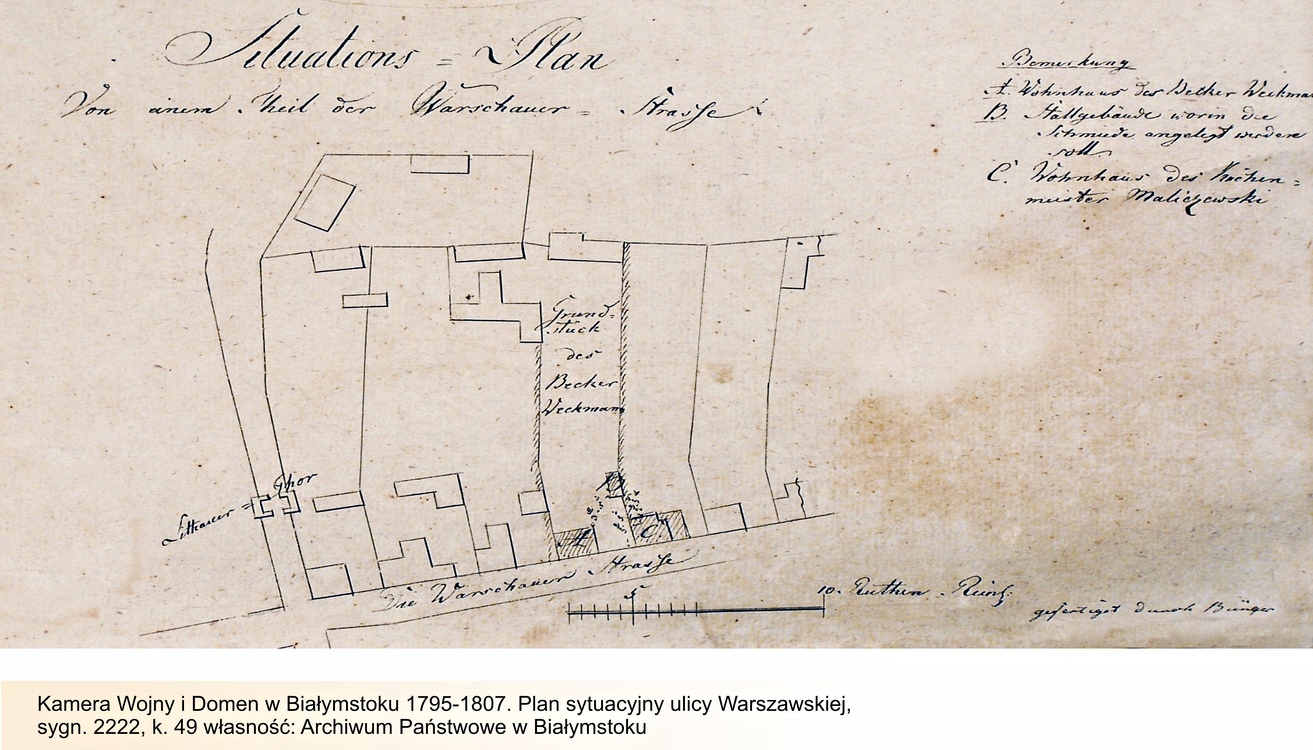 Situations = Plan
Von einem Theil der Warschauer = Strasse
Bemerkung
A. Wohnhaus des Becker Weckma
B. Stallgebäude worin die
Schmiede angelegt werden
soll.
C. Wohnhaus des Küchen =
meister Maliczewski
Grund=
stück
des
Becker
Weckmann
Litthauer = Thor
B
A
C.
Die Warschauer Strasse
5
10. Ruthen Reinl:
gefertiget durch Bünger
Kamera Wojny i Domen w Białymstoku 1795-1807. Plan sytuacyjny ulicy Warszawskiej,
sygn. 2222, k. 49 własność: Archiwum Państwowe w Białymstoku